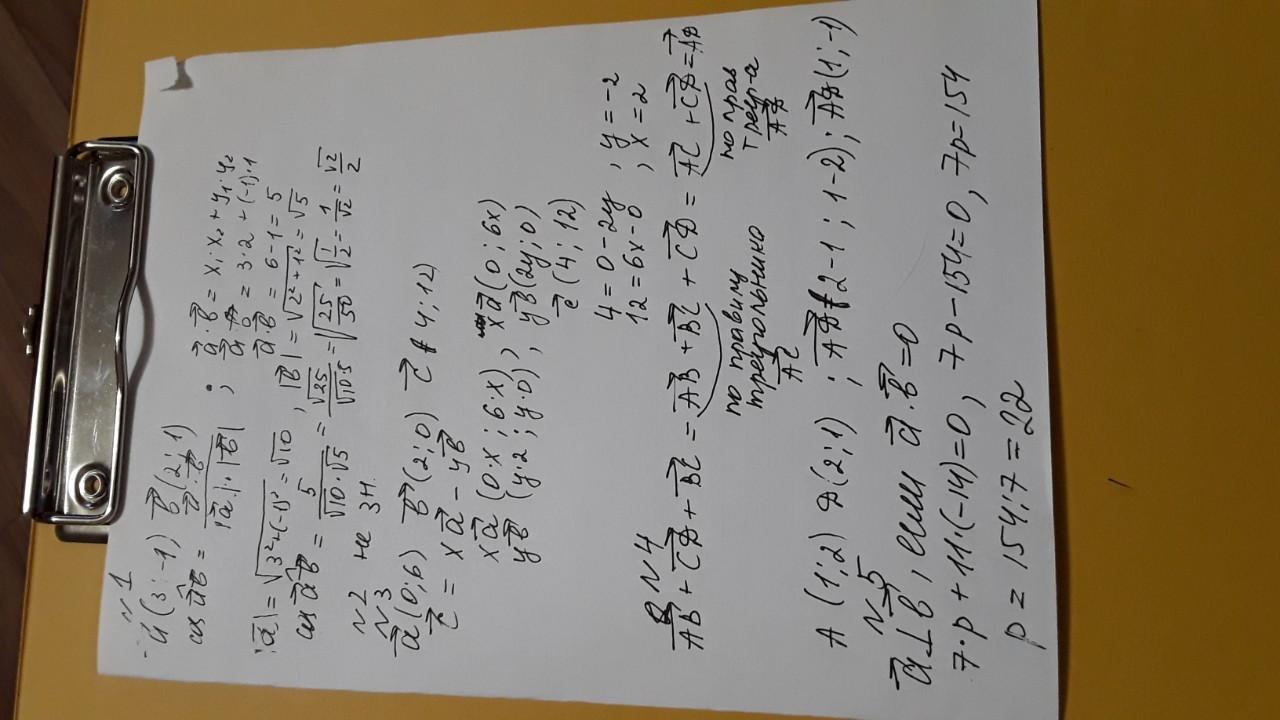 N1
a⃗(3;-1) b⃗(2;1)
cos a⃗b⃗ = a⃗·b⃗ / |a⃗|·|b⃗| ; a⃗·b⃗ = x₁x₂+y₁·y₂
a⃗b⃗ = 3·2+(-1)·1
a⃗b⃗ = 6-1=5
|a⃗|=√3²+(-1)²=√10 , |b⃗|=√2²+1²=√5
cos a⃗b⃗ = 5/√10·√5 = √25/√10·5 = √25/50 = √1/2 = 1/√2 = √2/2
N2 не зн.
N3
a⃗(0;6) b⃗(2;0) c⃗(4;12)
c⃗ = xa⃗ - yb⃗
xa⃗(0·x;6·x), xa⃗(0;6x)
yb⃗(y·2;y·0), yb⃗(2y;0)
c⃗(4;12)
4=0-2y , y=-2
12=6x-0 , x=2
N4
AB⃗+CD⃗+BC⃗ = AB⃗+BC⃗+CD⃗ = AC⃗+CD⃗=AD⃗
по правилу треугольника AC⃗
по прав треуг-а AD⃗
A(1;2) D(2;1) ; AD⃗(2-1;1-2); AD⃗(1;-1)
N5
a⃗⊥b⃗, если a⃗·b⃗=0
7·p+11·(-14)=0, 7p-154=0, 7p=154
p=154:7=22